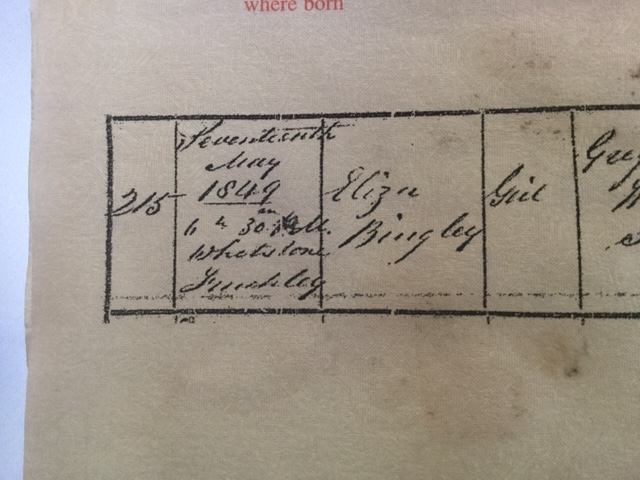 where born
215
Seventeenth
May
1849
30 M.
Whetstone
Finchley
Eliza
Bingley
Girl
Greg